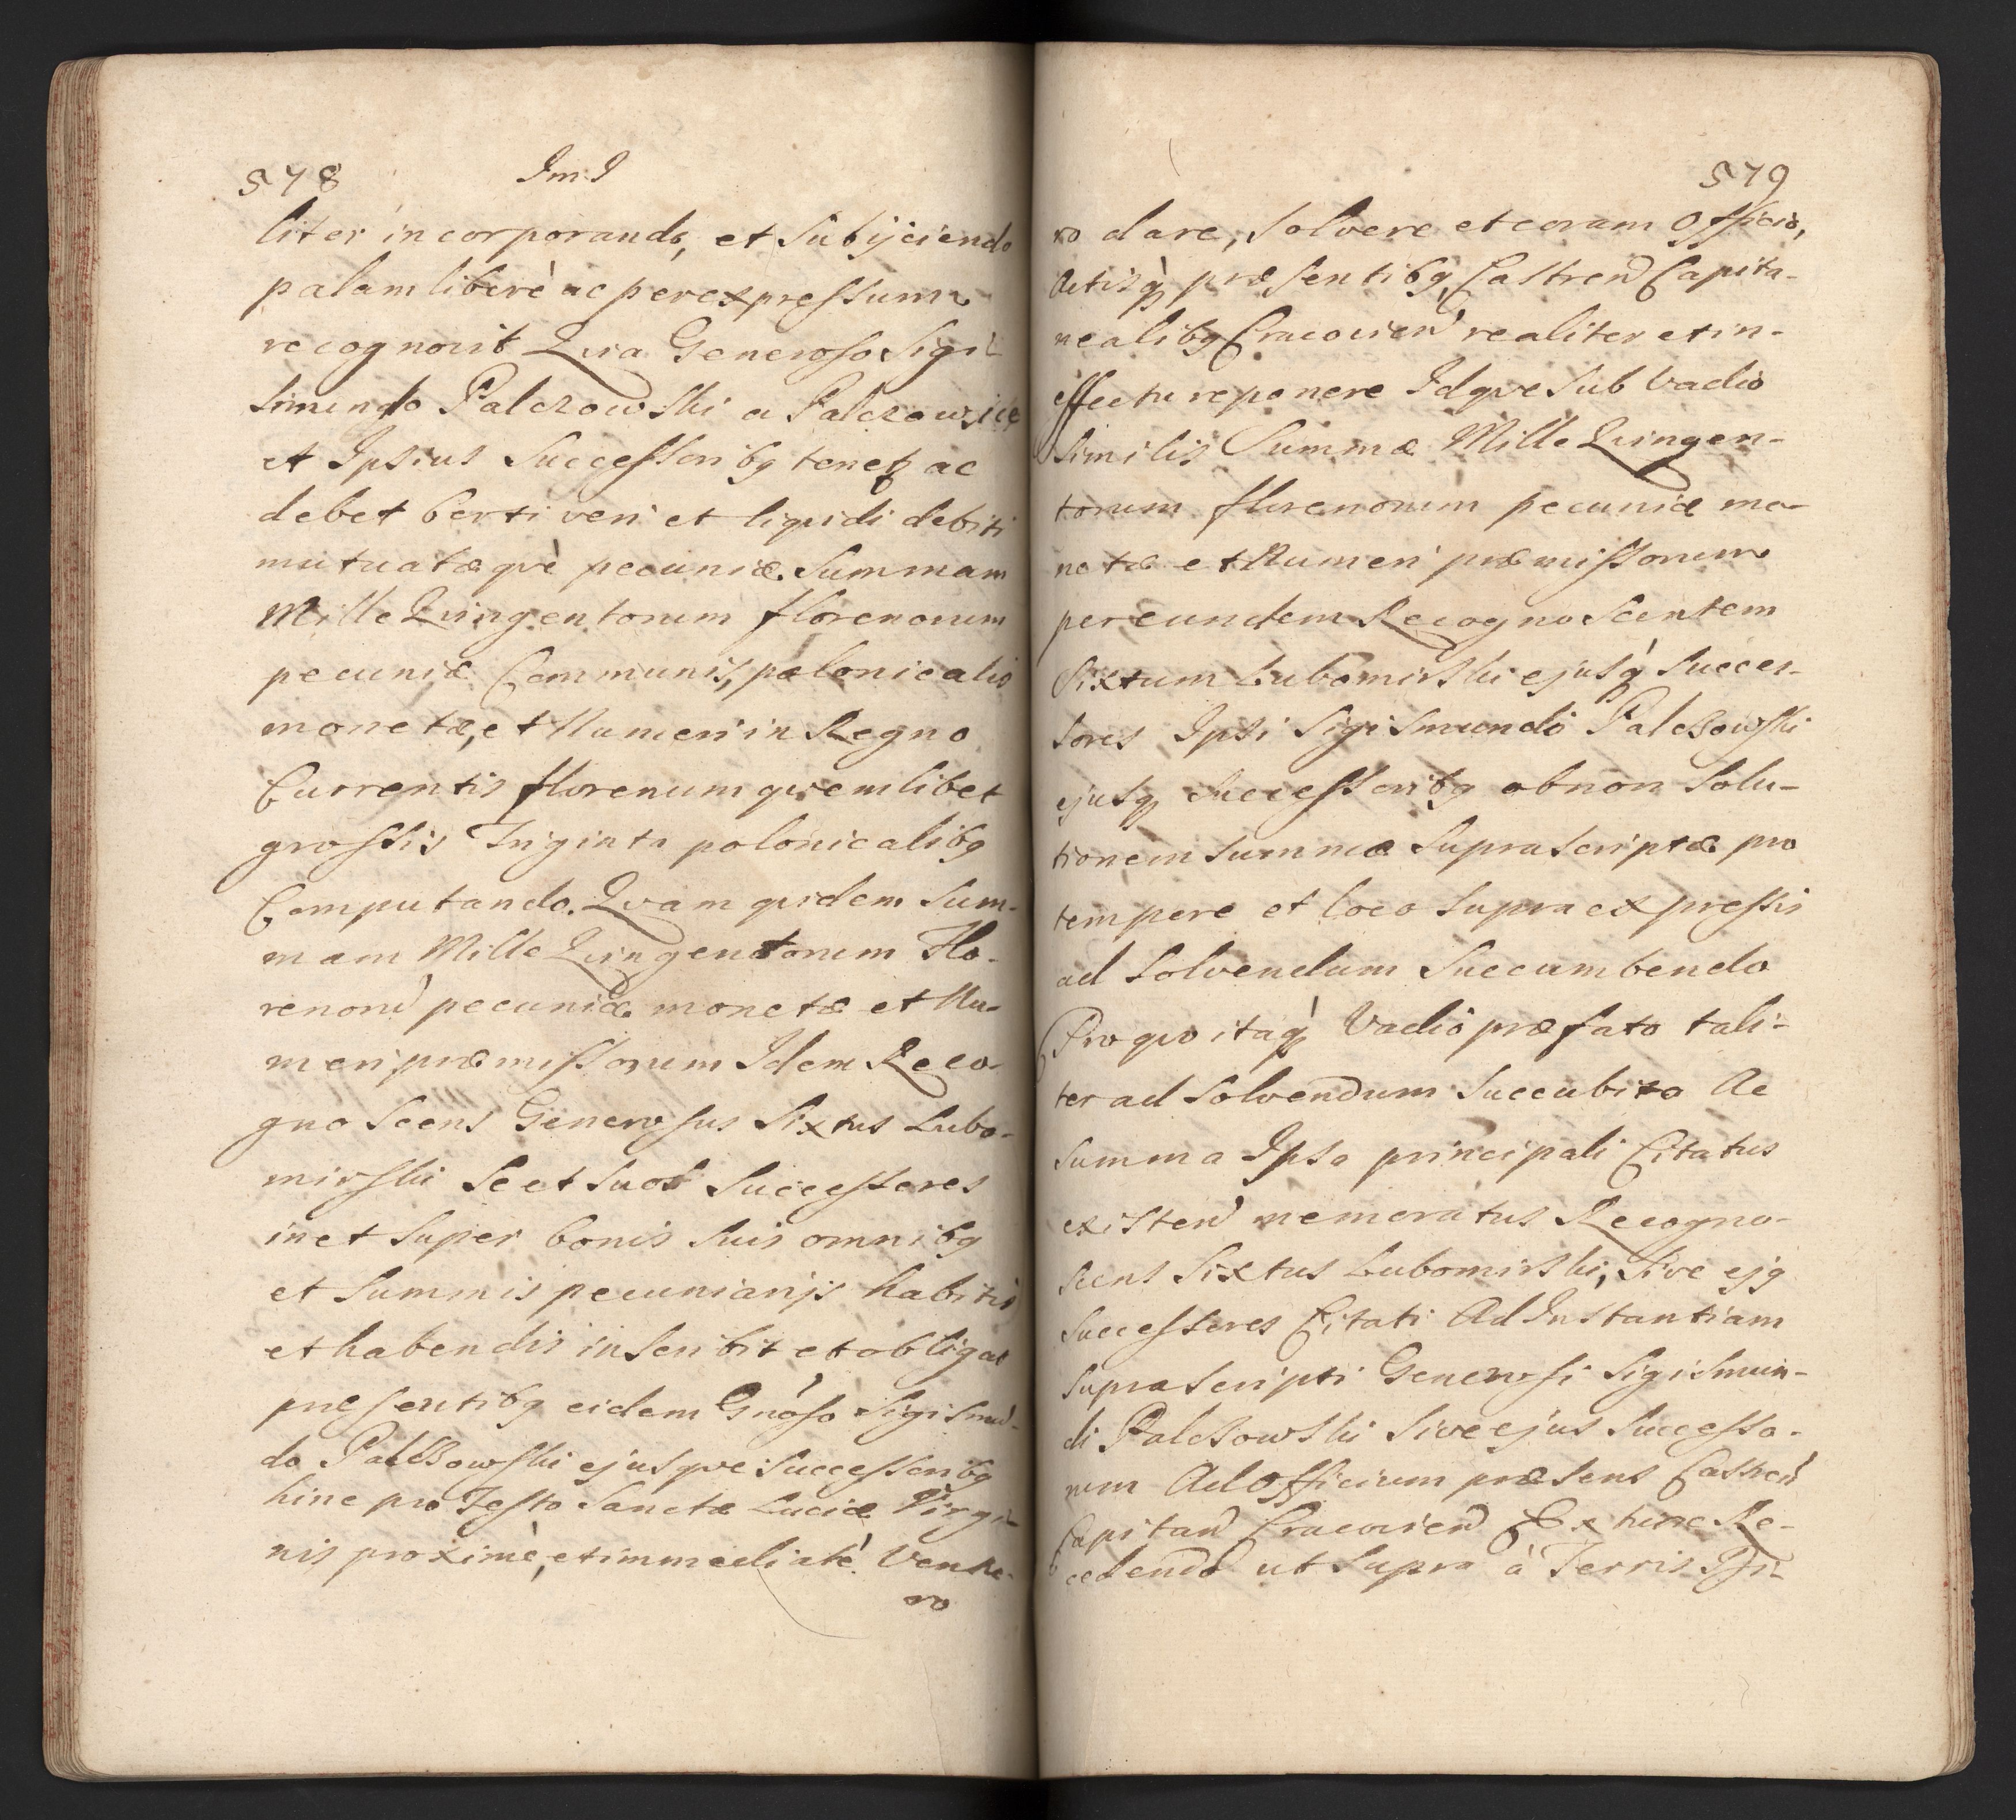 578 Im I
liter incorporando, et Subijciendo
palam liberè ac per expressum
recognovit Quia Generoso Sigi-
smundo Palczowski a Palczowice
et Ipsius Successoribg tenetz ac
debet Certi veri et liquidi debiti
mutuatæqvè pecuniæ Summam
Mille Quingentorum florenorum
pecuniæ Communis, polonicalis
monetæ, et Numeri in Regno
Currentis florenum quemlibet
grossis Triginta polonicalibg
Computando. Qvam quidem Sum-
mam Mille Quingentorum Flo-
renorũ pecuniæ monetæ et Nu-
meri præmissorum Idem Reco-
gnoscens Generosus Sixtus Lubo-
mirski Se et Suos Successores
in et Super bonis Suis omnibg
et Summis pecuniarijs habitis
et habendis inscribit et obligat
præsentibg eidem Gnoso Sigismũ-
do Palczowski ejusqve Successoribg
hinc pro Festo Sanctæ Luciæ Virgi-
nis proximè, et immediatè Ventu-
ro
579
ro dare, Solvere et coram Officio,
Actisq præsentibg, Castreñ Capita-
nealibg Cracovieñ realiter et in-
effectu reponere Idqve Sub Vadio
Similis Summæ Mille Quingen-
torum florenorum pecuniæ mo-
netæ et Numeri præmissorum
per eundem Recognoscentem
Sixtum Lubomirski ejusq Succes-
sores Ipsi Sigismundo Palczowski
ejusq Successoribg ob non Solu-
tionem Summæ Supra Scriptæ pro
tempore et loco Supra expressis
ad Solvendum Succumbendo
Pro quo itaq Vadio præfato tali-
ter ad Solvendum Succubito Ac
Summa Ipsa principali Citatus
existeñ memoratus Recogno-
scens Sixtus Lubomirski, Sive ejg
Successores Citati Ad Instantiam
Supra Scripti Generosi Sigismun-
di Palczowski Sive ejus Successo-
rum Ad Officium præsens Castreñ
Capitañ Cracovieñ Ex hinc Re-
cedendo ut Supra à Terris Isti-